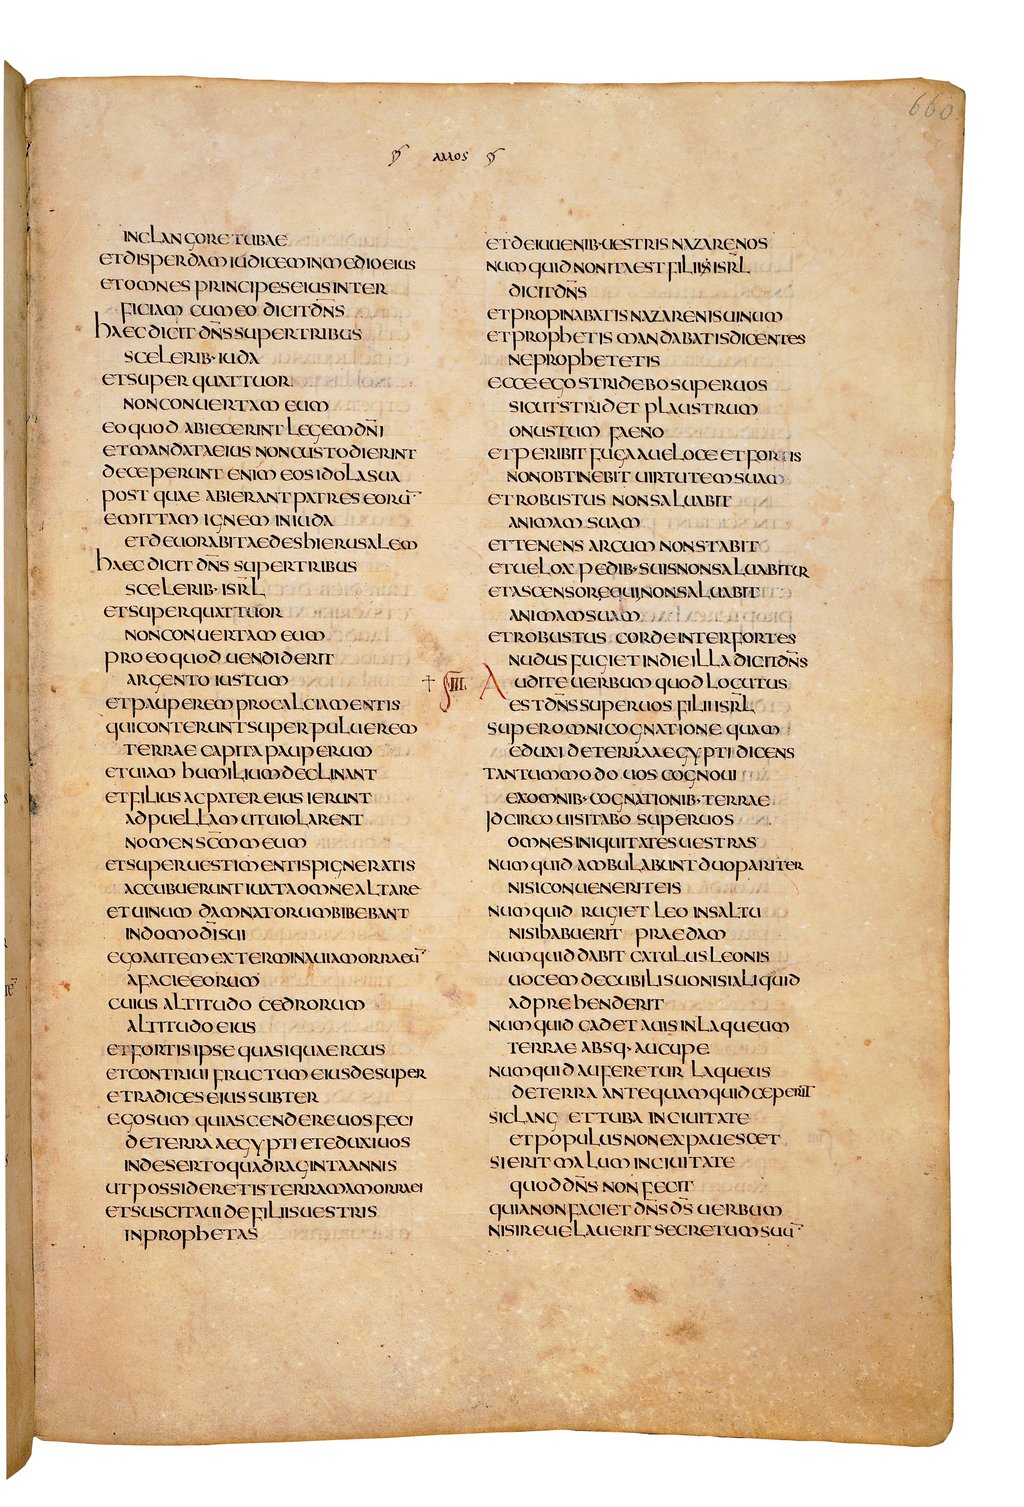 660
AMOS
IN CLANGORE TUBAE
ET DISPERDAM IUDICEM IN MEDIO EIUS
ET OMNES PRINCIPES EIUS INTER
FICIAM CUM EO DICIT DN̄S
HAEC DICIT DN̄S SUPER TRIBUS
SCELERIB· IUDA
ET SUPER QUATTUOR
NON CONUERTAM EUM
EO QUOD ABIECERINT LEGEM DN̄I
ET MANDATA EIUS NON CUSTODIERINT
DECEPERUNT ENIM EOS IDOLA SUA
POST QUAE ABIERANT PATRES EORŪ
EMITTAM IGNEM IN IUDA
ET DEUORABIT AEDES HIERUSALEM
HAEC DICIT DN̄S SUPER TRIBUS
SCELERIB· ISRL̄
ET SUPER QUATTUOR
NON CONUERTAM EUM
PRO EO QUOD UENDIDERIT
ARGENTO IUSTUM
ET PAUPEREM PRO CALCIAMENTIS
QUI CONTERUNT SUPER PULUEREM
TERRAE CAPITA PAUPERUM
ET UIAM HUMILIUM DECLINANT
ET FILIUS AC PATER EIUS IERUNT
AD PUELLAM UT UIOLARENT
NOMEN SC̄M MEUM
ET SUPER UESTIMENTIS PIGNERATIS
ACCUBUERUNT IUXTA OMNE ALTARE
ET UINUM DAMNATORUM BIBEBANT
IN DOMO DĪ SUI
EGO AUTEM EXTERMINAUI AMORRAEŪ
A FACIE EORUM
CUIUS ALTITUDO CEDRORUM
ALTITUDO EIUS
ET FORTIS IPSE QUASI QUAERCUS
ET CONTRIUI FRUCTUM EIUS DESUPER
ET RADICES EIUS SUBTER
EGO SUM QUI ASCENDERE UOS FECI
DE TERRA AEGYPTI ET EDUXI UOS
IN DESERTO QUADRAGINTA ANNIS
UT POSSIDERETIS TERRAM AMORRAEI
ET SUSCITAUI DE FILIIS UESTRIS
IN PROPHETAS
ET DE IUUENIB· UESTRIS NAZARENOS
NUMQUID NON ITA EST FILII ISRL̄
DICIT DN̄S
ET PROPINABATIS NAZARENIS UINUM
ET PROPHETIS MANDABATIS DICENTES
NE PROPHETETIS
ECCE EGO STRIDEBO SUPER UOS
SICUT STRIDET PLAUSTRUM
ONUSTUM FAENO
ET PERIBIT FUGA A UELOCE ET FORTIS
NON OBTINEBIT UIRTUTEM SUAM
ET ROBUSTUS NON SALUABIT
ANIMAM SUAM
ET TENENS ARCUM NON STABIT
ET UELOX PEDIB· SUIS NON SALUABITUR
ET ASCENSOR EQUI NON SALUABIT
ANIMAM SUAM
ET ROBUSTUS CORDE INTER FORTES
NUDUS FUGIET IN DIE ILLA DICIT DN̄S
† III. AUDITE UERBUM QUOD LOCUTUS
EST DN̄S SUPER UOS FILII ISRL̄
SUPER OMNI COGNATIONE QUAM
EDUXI DE TERRA AEGYPTI DICENS
TANTUMMODO UOS COGNOUI
EX OMNIB· COGNATIONIB· TERRAE
IDCIRCO UISITABO SUPER UOS
OMNES INIQUITATES UESTRAS
NUMQUID AMBULABUNT DUO PARITER
NISI CONUENERIT EIS
NUMQUID RUGIET LEO IN SALTU
NISI HABUERIT PRAEDAM
NUMQUID DABIT CATULUS LEONIS
UOCEM DE CUBILI SUO NISI ALIQUID
ADPREHENDERIT
NUMQUID CADET AUIS IN LAQUEUM
TERRAE ABSQ· AUCUPE
NUMQUID AUFERETUR LAQUEUS
DE TERRA ANTEQUAM QUID CEPERIT
SI CLANG ET TUBA IN CIUITATE
ET POPULUS NON EXPAUESCET
SI ERIT MALUM IN CIUITATE
QUOD DN̄S NON FECIT
QUIA NON FACIET DN̄S D̄S UERBUM
NISI REUELAUERIT SECRETUM SUŪ